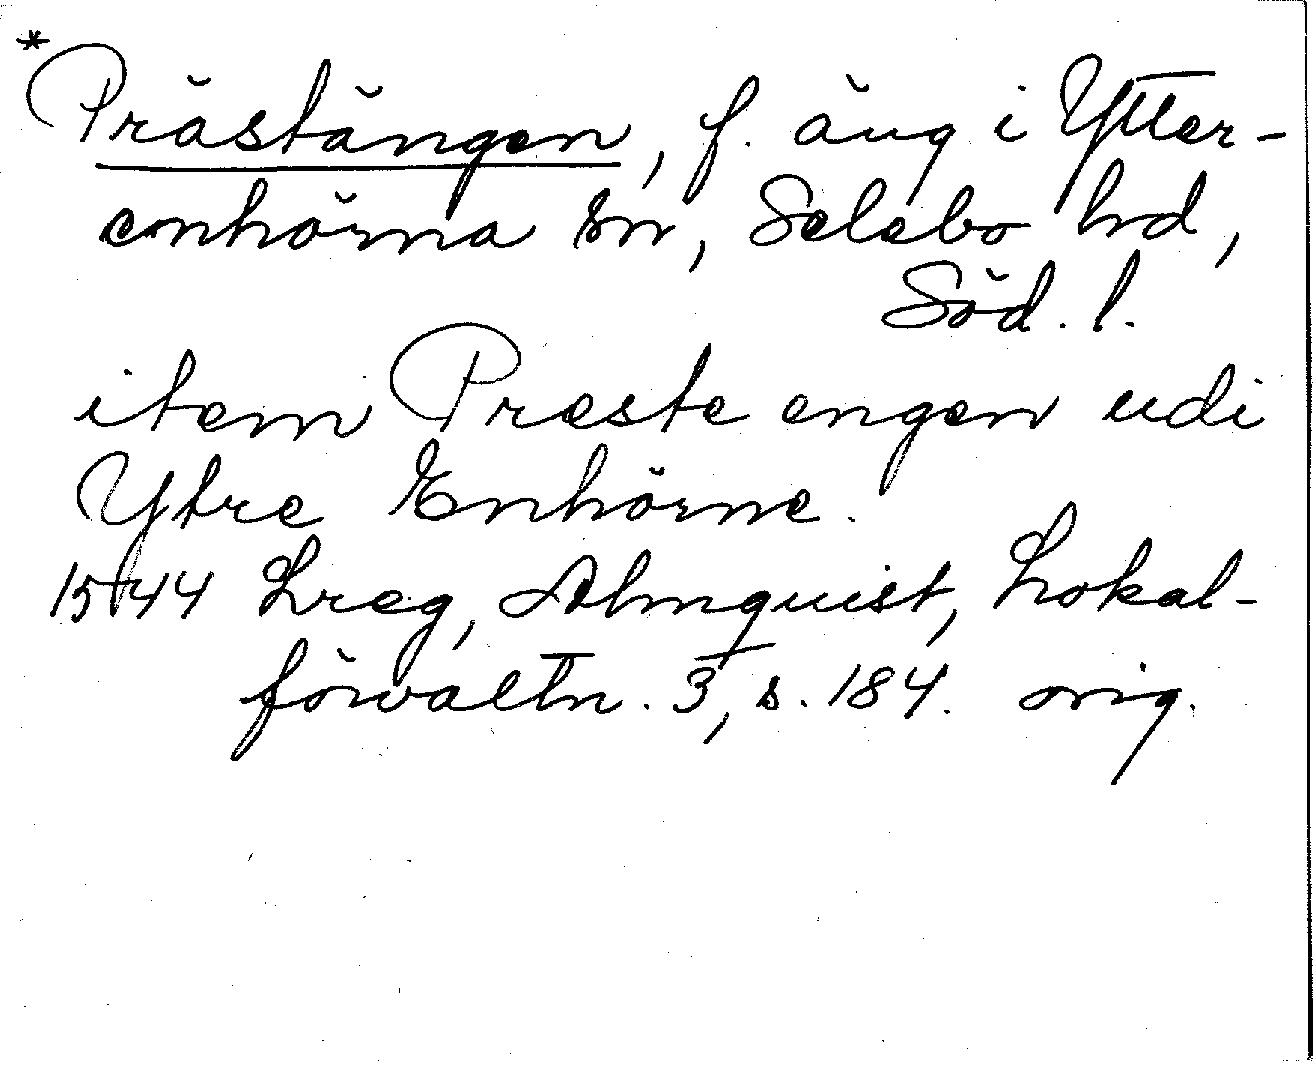 *Prästängen, f. äng i Ytter-
enhörna sn, Selebo hd,
Söd. l.
item Preste engen udi
Ytre Enhörne.
1544 Lreg, Almquist, Lokal-
förvaltn. 3, s. 184. orig.